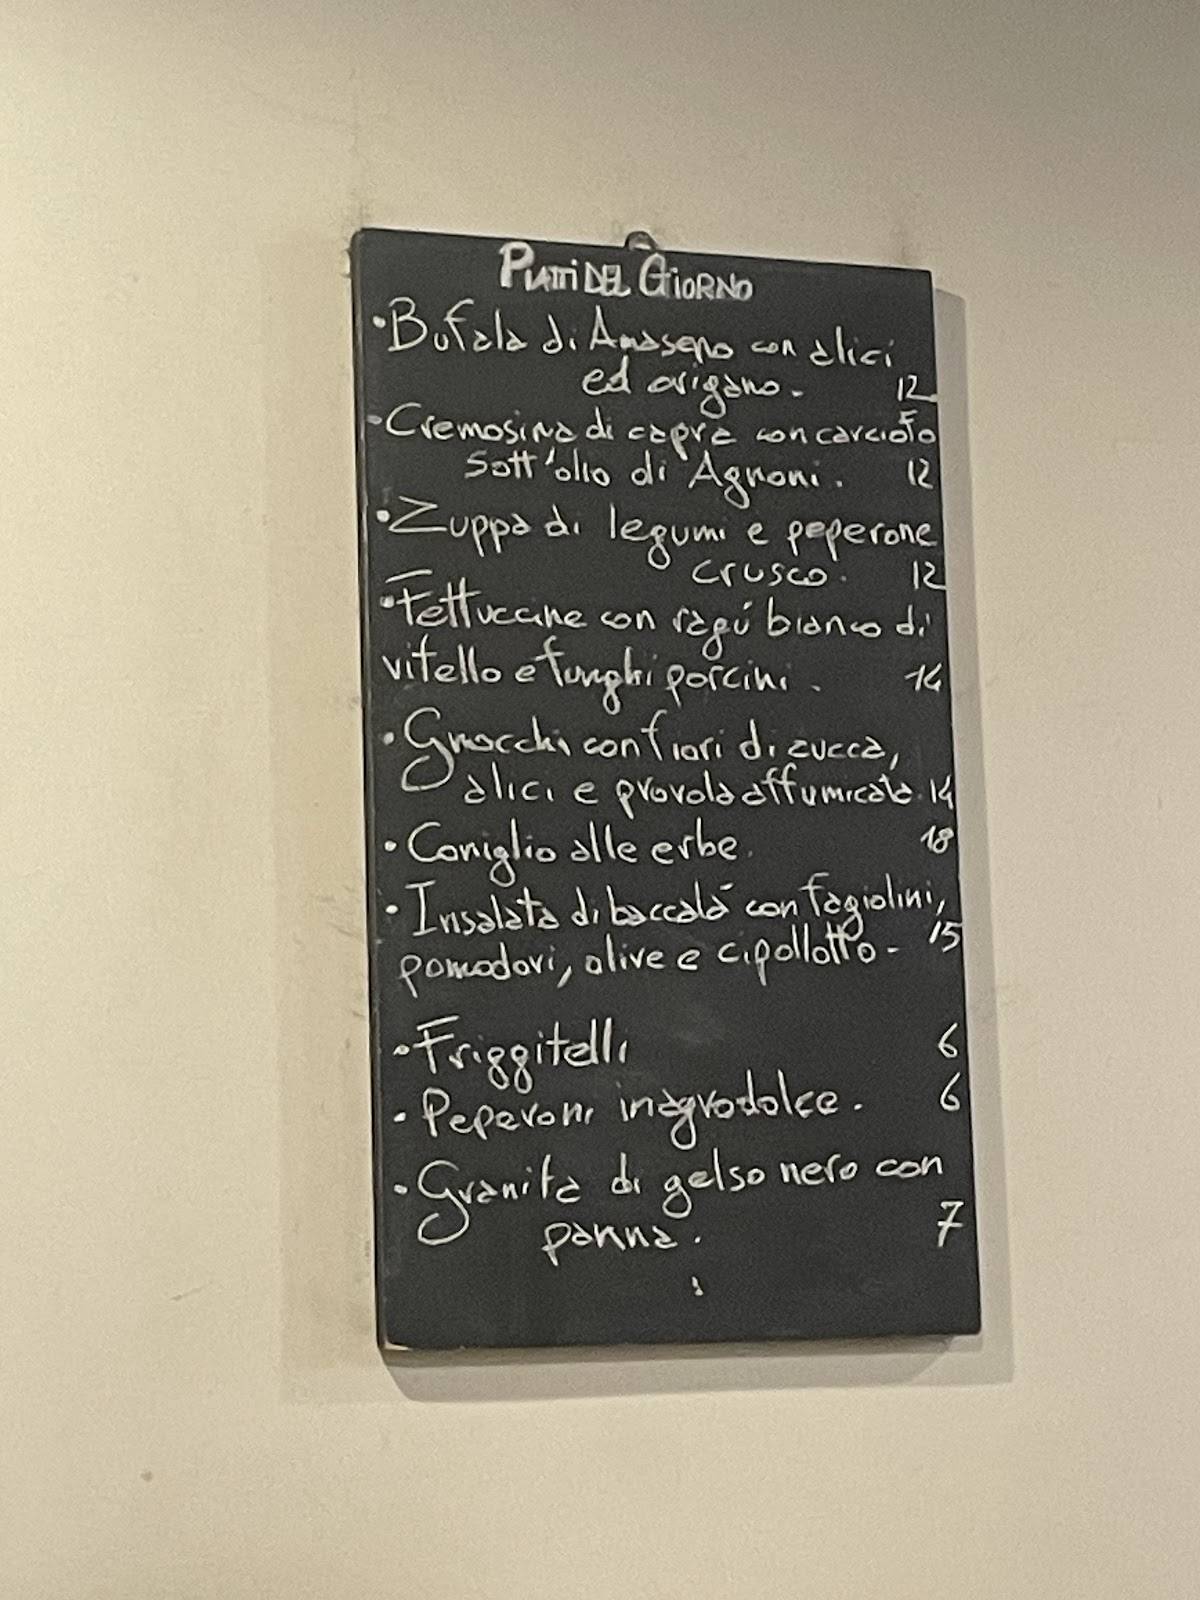 PIATTI DEL GIORNO
• Bufala di Amaseno con alici
ed origano. 12
• Cremosina di capra con carciofo
sott'olio di Agnoni. 12
• Zuppa di legumi e peperone
crusco. 12
• Fettuccine con ragú bianco di
vitello e funghi porcini. 14
• Gnocchi con fiori di zucca,
alici e provola affumicata. 14
• Coniglio alle erbe. 18
• Insalata di baccalá con fagiolini,
pomodori, olive e cipollotto - 15
• Friggitelli 6
• Peperoni in agrodolce. 6
• Granita di gelso nero con
panna. 7